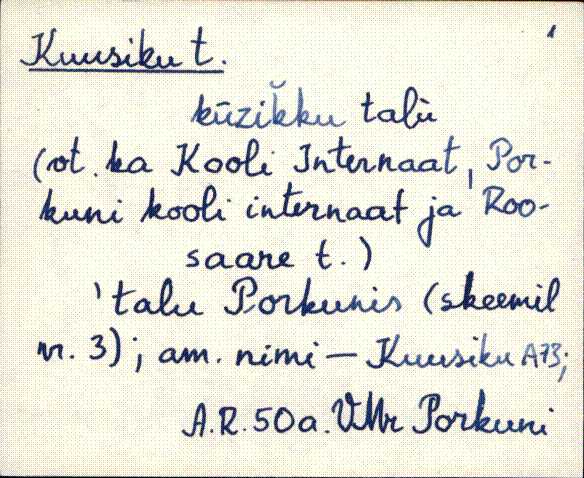 1
Kuusiku t.
kūzik̆ku talù
(vt. ka Kooli Internaat, Por-
kuni kooli internaat ja Roo-
saare t.)
'talu Porkunis (skeemil
nr. 3); am. nimi – Kuusiku A73;
A.R. 50a. VMr Porkuni